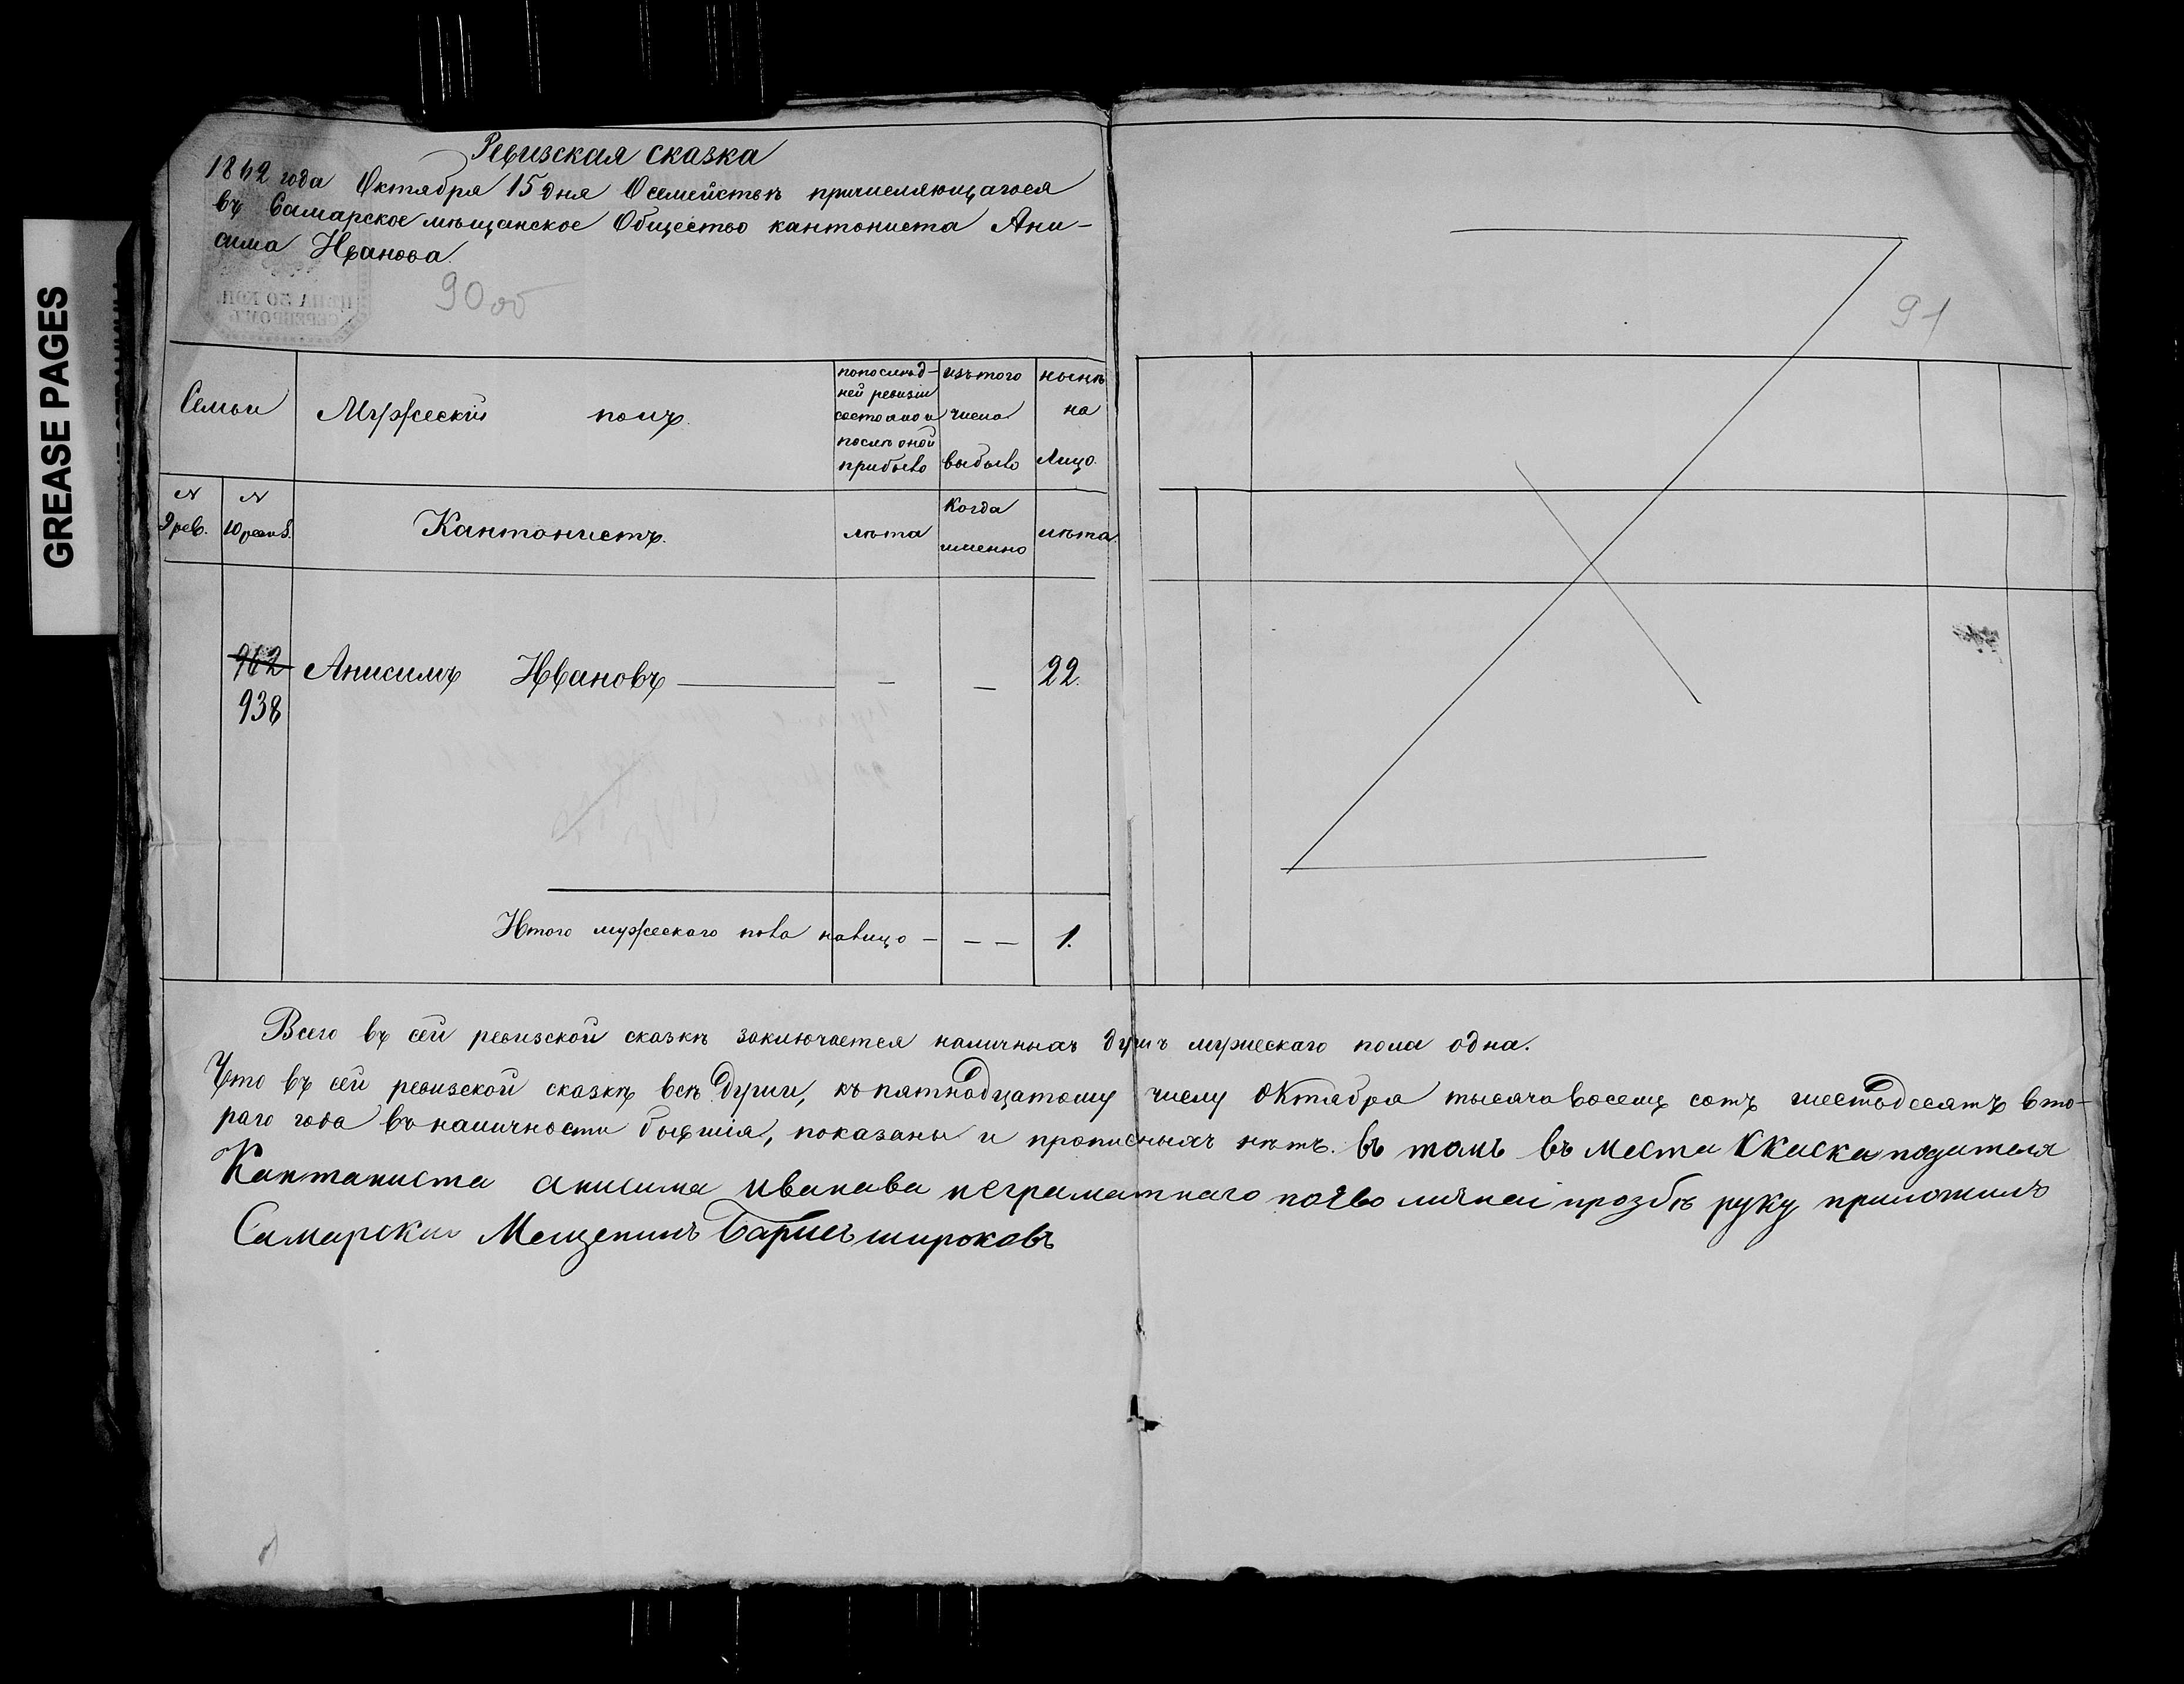 GREASE PAGES
Ревизская сказка
1862 года Октября 15 дня О семействѣ причисляющагося
въ Самарское мѣщанское Общество кантониста Ани-
сима Иванова.
ЦѢНА 30 КОП.
СЕРЕБРОМЪ
90 об
91
Семьи
Мужескій полъ.
по послѣд-
ней ревизіи
состояло и
послѣ оной
прибыло
изъ того
числа
выбыло
нынѣ
на
Лицо.
№
9 рев.
№
10 ревиз.
Кантонистъ.
лѣта
Когда
именно
лѣта.
962
938
Анисимъ Ивановъ — — — 22.
Итого мужескаго пола налицо — — — 1.
Всего въ сей ревизской сказкѣ заключается наличныхъ душъ мужескаго пола одна.
Что въ сей ревизской сказкѣ всѣ души, къ пятнадцатому числу Октября тысяча восемь сотъ шестьдесятъ вто-
раго года въ наличности бывшія, показаны и прописныхъ нѣтъ. въ томъ въ места Скаски подателя
Кантаниста анисима иванава неграматнаго по Ево личнаи прозбѣ руку приложилъ
Самарски Мещенинъ Барисъ широковъ